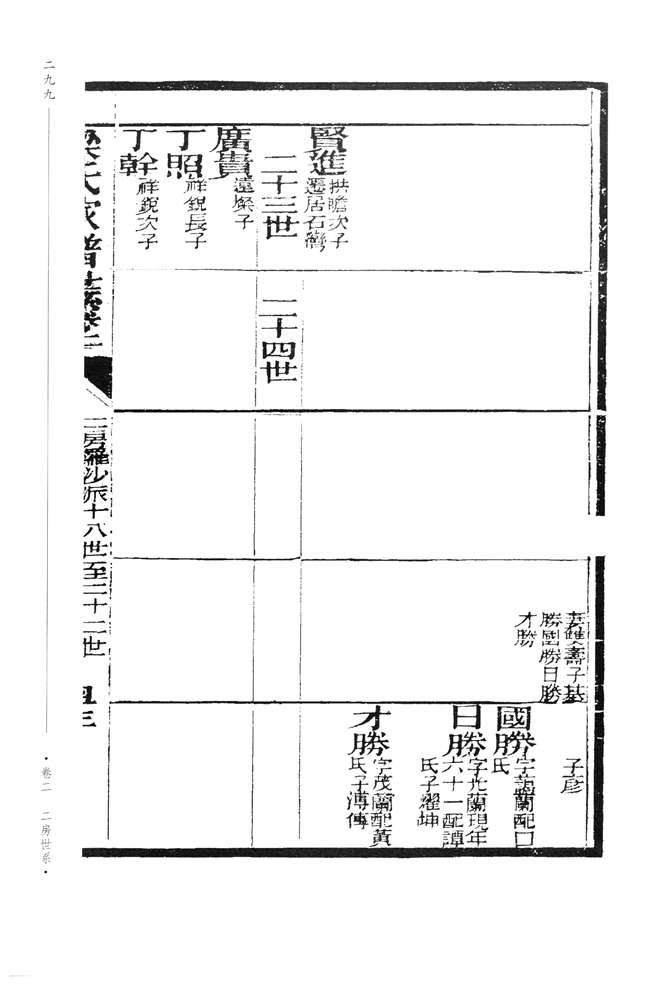 壽雙壽子基
勝國勝日勝
才勝
子彥
國勝
蘭配口
氏
日勝
字 蘭現年
六十一配譚
氏子耀坤
才勝
字茂蘭配黃
氏子溥傳
賢進
拱瞻次子
遷居石灣
二十三世
二十四世
廣貴
遠燦子
丁照
祥銳長子
丁幹
祥銳次子
氏家譜
卷二
二房羅沙派十八世至二十二世
二九九
·卷二 二房世系·